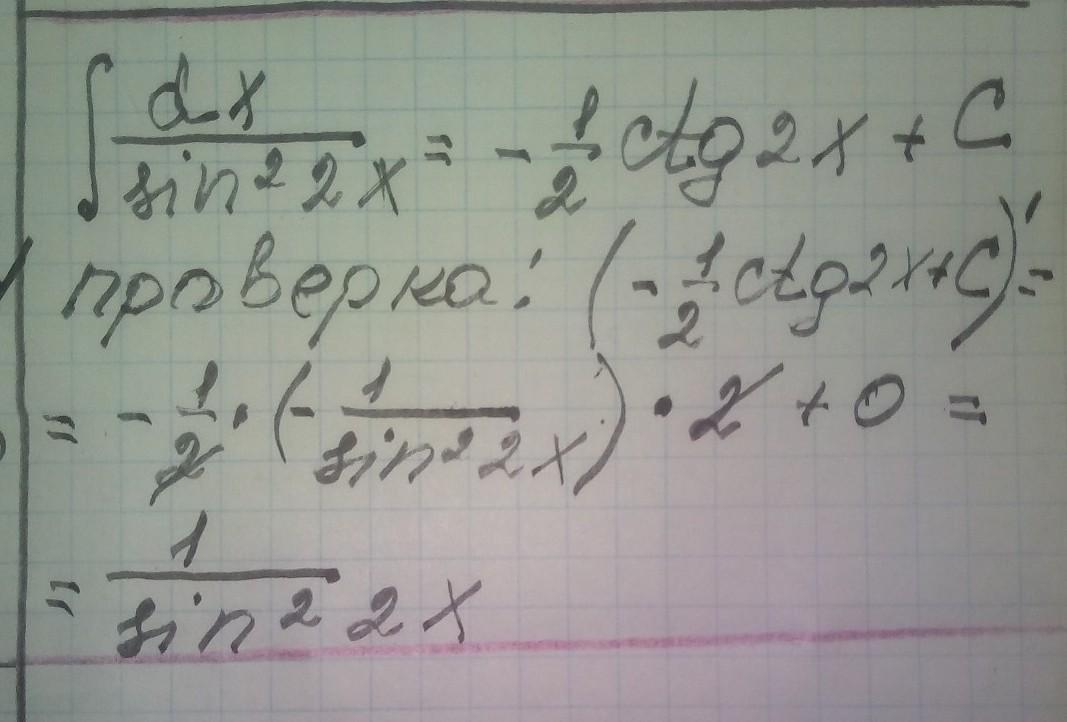 ∫ dx / sin² 2x = - 1/2 ctg 2x + C
проверка: (- 1/2 ctg 2x + C)' =
= - 1/2 · (- 1 / sin² 2x) · 2 + 0 =
= 1 / sin² 2x